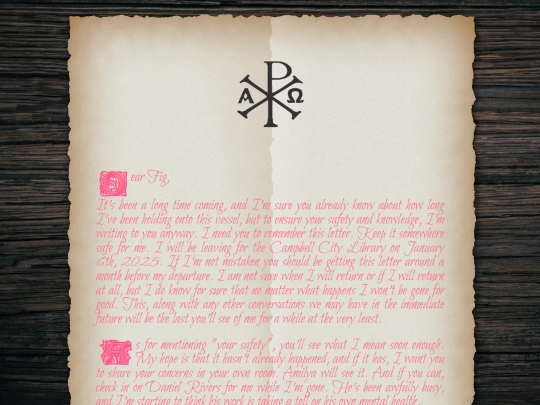 Α Ω
Dear Fig,
It's been a long time coming, and I'm sure you already know about how long
I've been holding onto this vessel, but to ensure your safety and knowledge, I'm
writing to you anyway. I need you to remember this letter. Keep it somewhere
safe for me. I will be leaving for the Campbell City Library on January
6th, 2025. If I'm not mistaken you should be getting this letter around a
month before my departure. I am not sure when I will return or if I will return
at all, but I do know for sure that no matter what happens I won't be gone for
good. This, along with any other conversations we may have in the immediate
future will be the last you'll see of me for a while at the very least.
As for mentioning "your safety", you'll see what I mean soon enough.
My hope is that it hasn't already happened, and if it has, I want you
to share your concerns in your own room. Amilya will see it. And if you can,
check in on Daniel Rivers for me while I'm gone. He's been awfully busy,
and I'm starting to think his work is taking a toll on his own mental health.